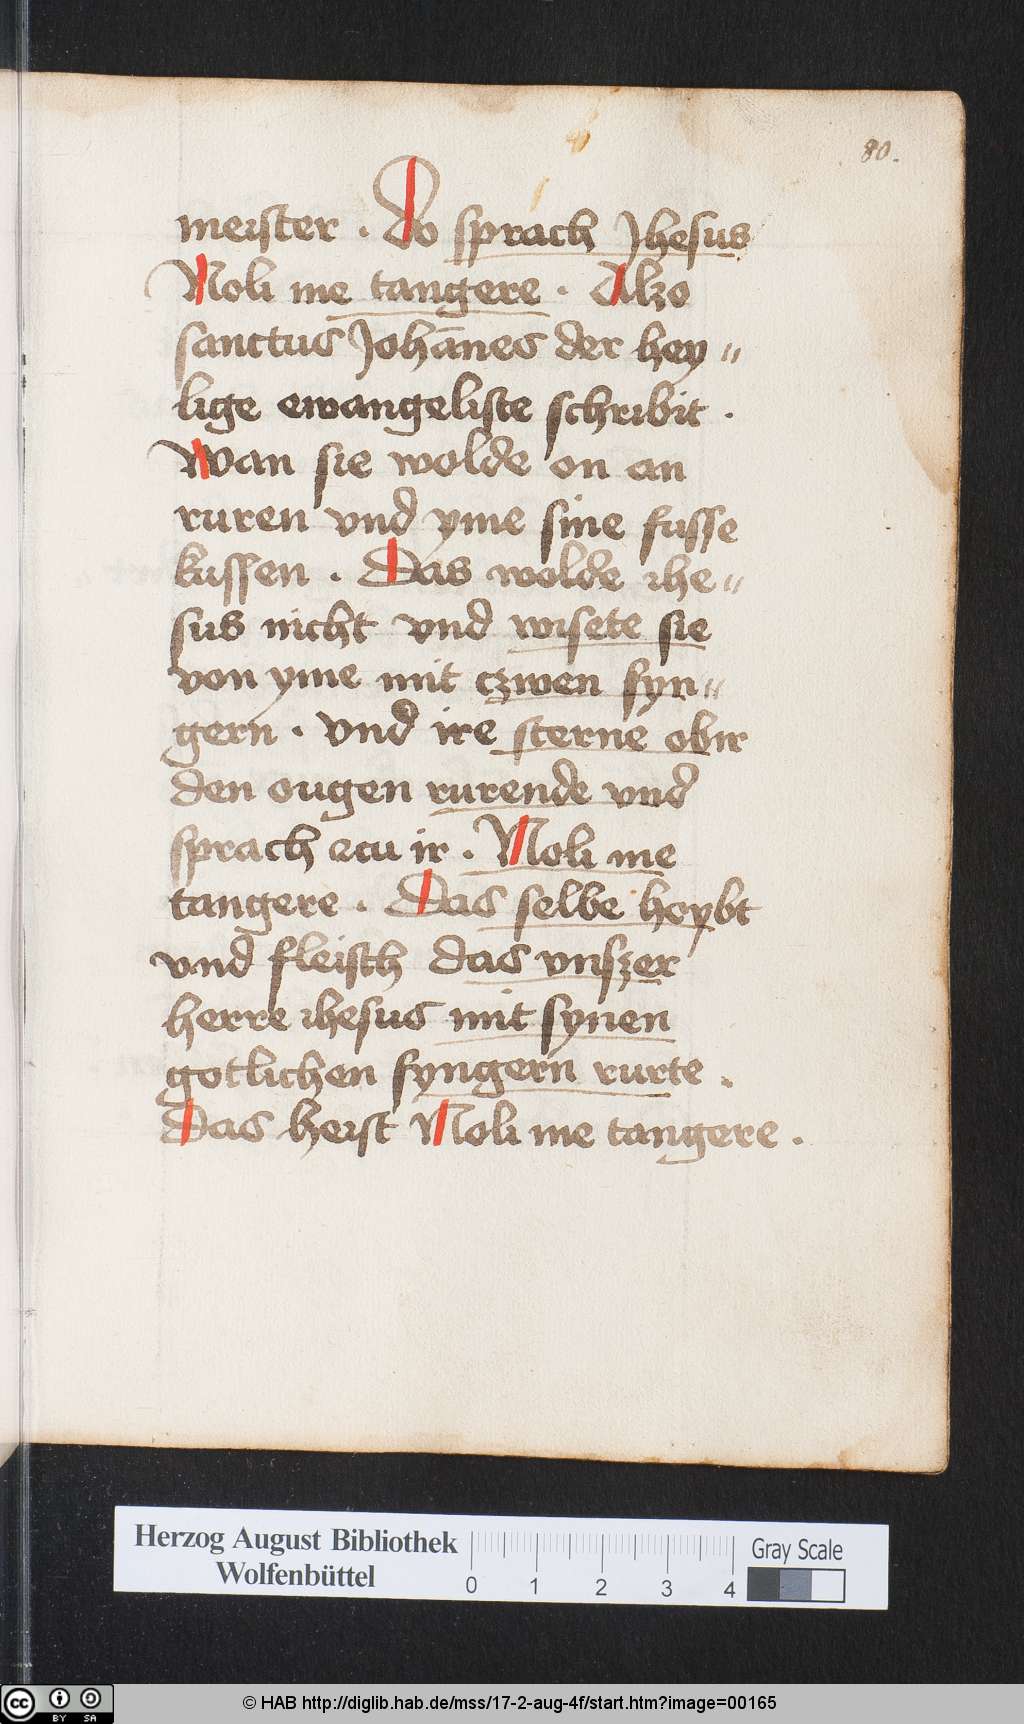 80.
meister . Do sprach Jhesus
Noli me tangere . Alzo
sanctus Johānes der hey〃
lige ewangeliste schribit .
Wan sie wolde on an
ruren vnd yme sine fusse
kussen . Das wolde ihe〃
sus nicht vnd wisete sie
von yme mit czwen fyn〃
gern . vnd ire sterne obir
den ougen rurende vnd
sprach czu ir . Noli me
tangere . Das selbe hoybt
vnd fleisch das vnszer
herre ihesus mit synen
gotlichen fyngern rurte .
Das heist Noli me tangere .
Herzog August Bibliothek
Wolfenbüttel
0 1 2 3 4
Gray Scale
cc BY SA
© HAB http://diglib.hab.de/mss/17-2-aug-4f/start.htm?image=00165